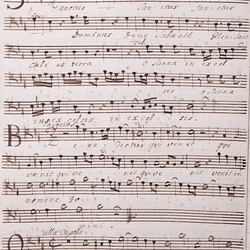 Sanctus Sanctus Sanctus
Dominus Deus Sabaoth Pleni sunt
Cæli et terra osanna in excel
sis osanna
in excelsis in excel sis.
Be ne Dictus qui venit qui
venit qui ve nit ve nit in
nomine Do
mini.